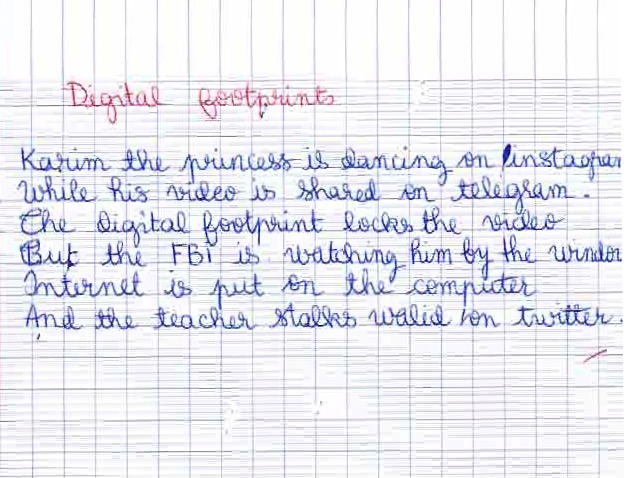 Digital footprints
Karim the princess is dancing on instagram
While his video is shared on telegram.
The digital footprint locks the video
But the FBi is watching him by the window
Internet is put on the computer
And the teacher stalks walid on twitter.